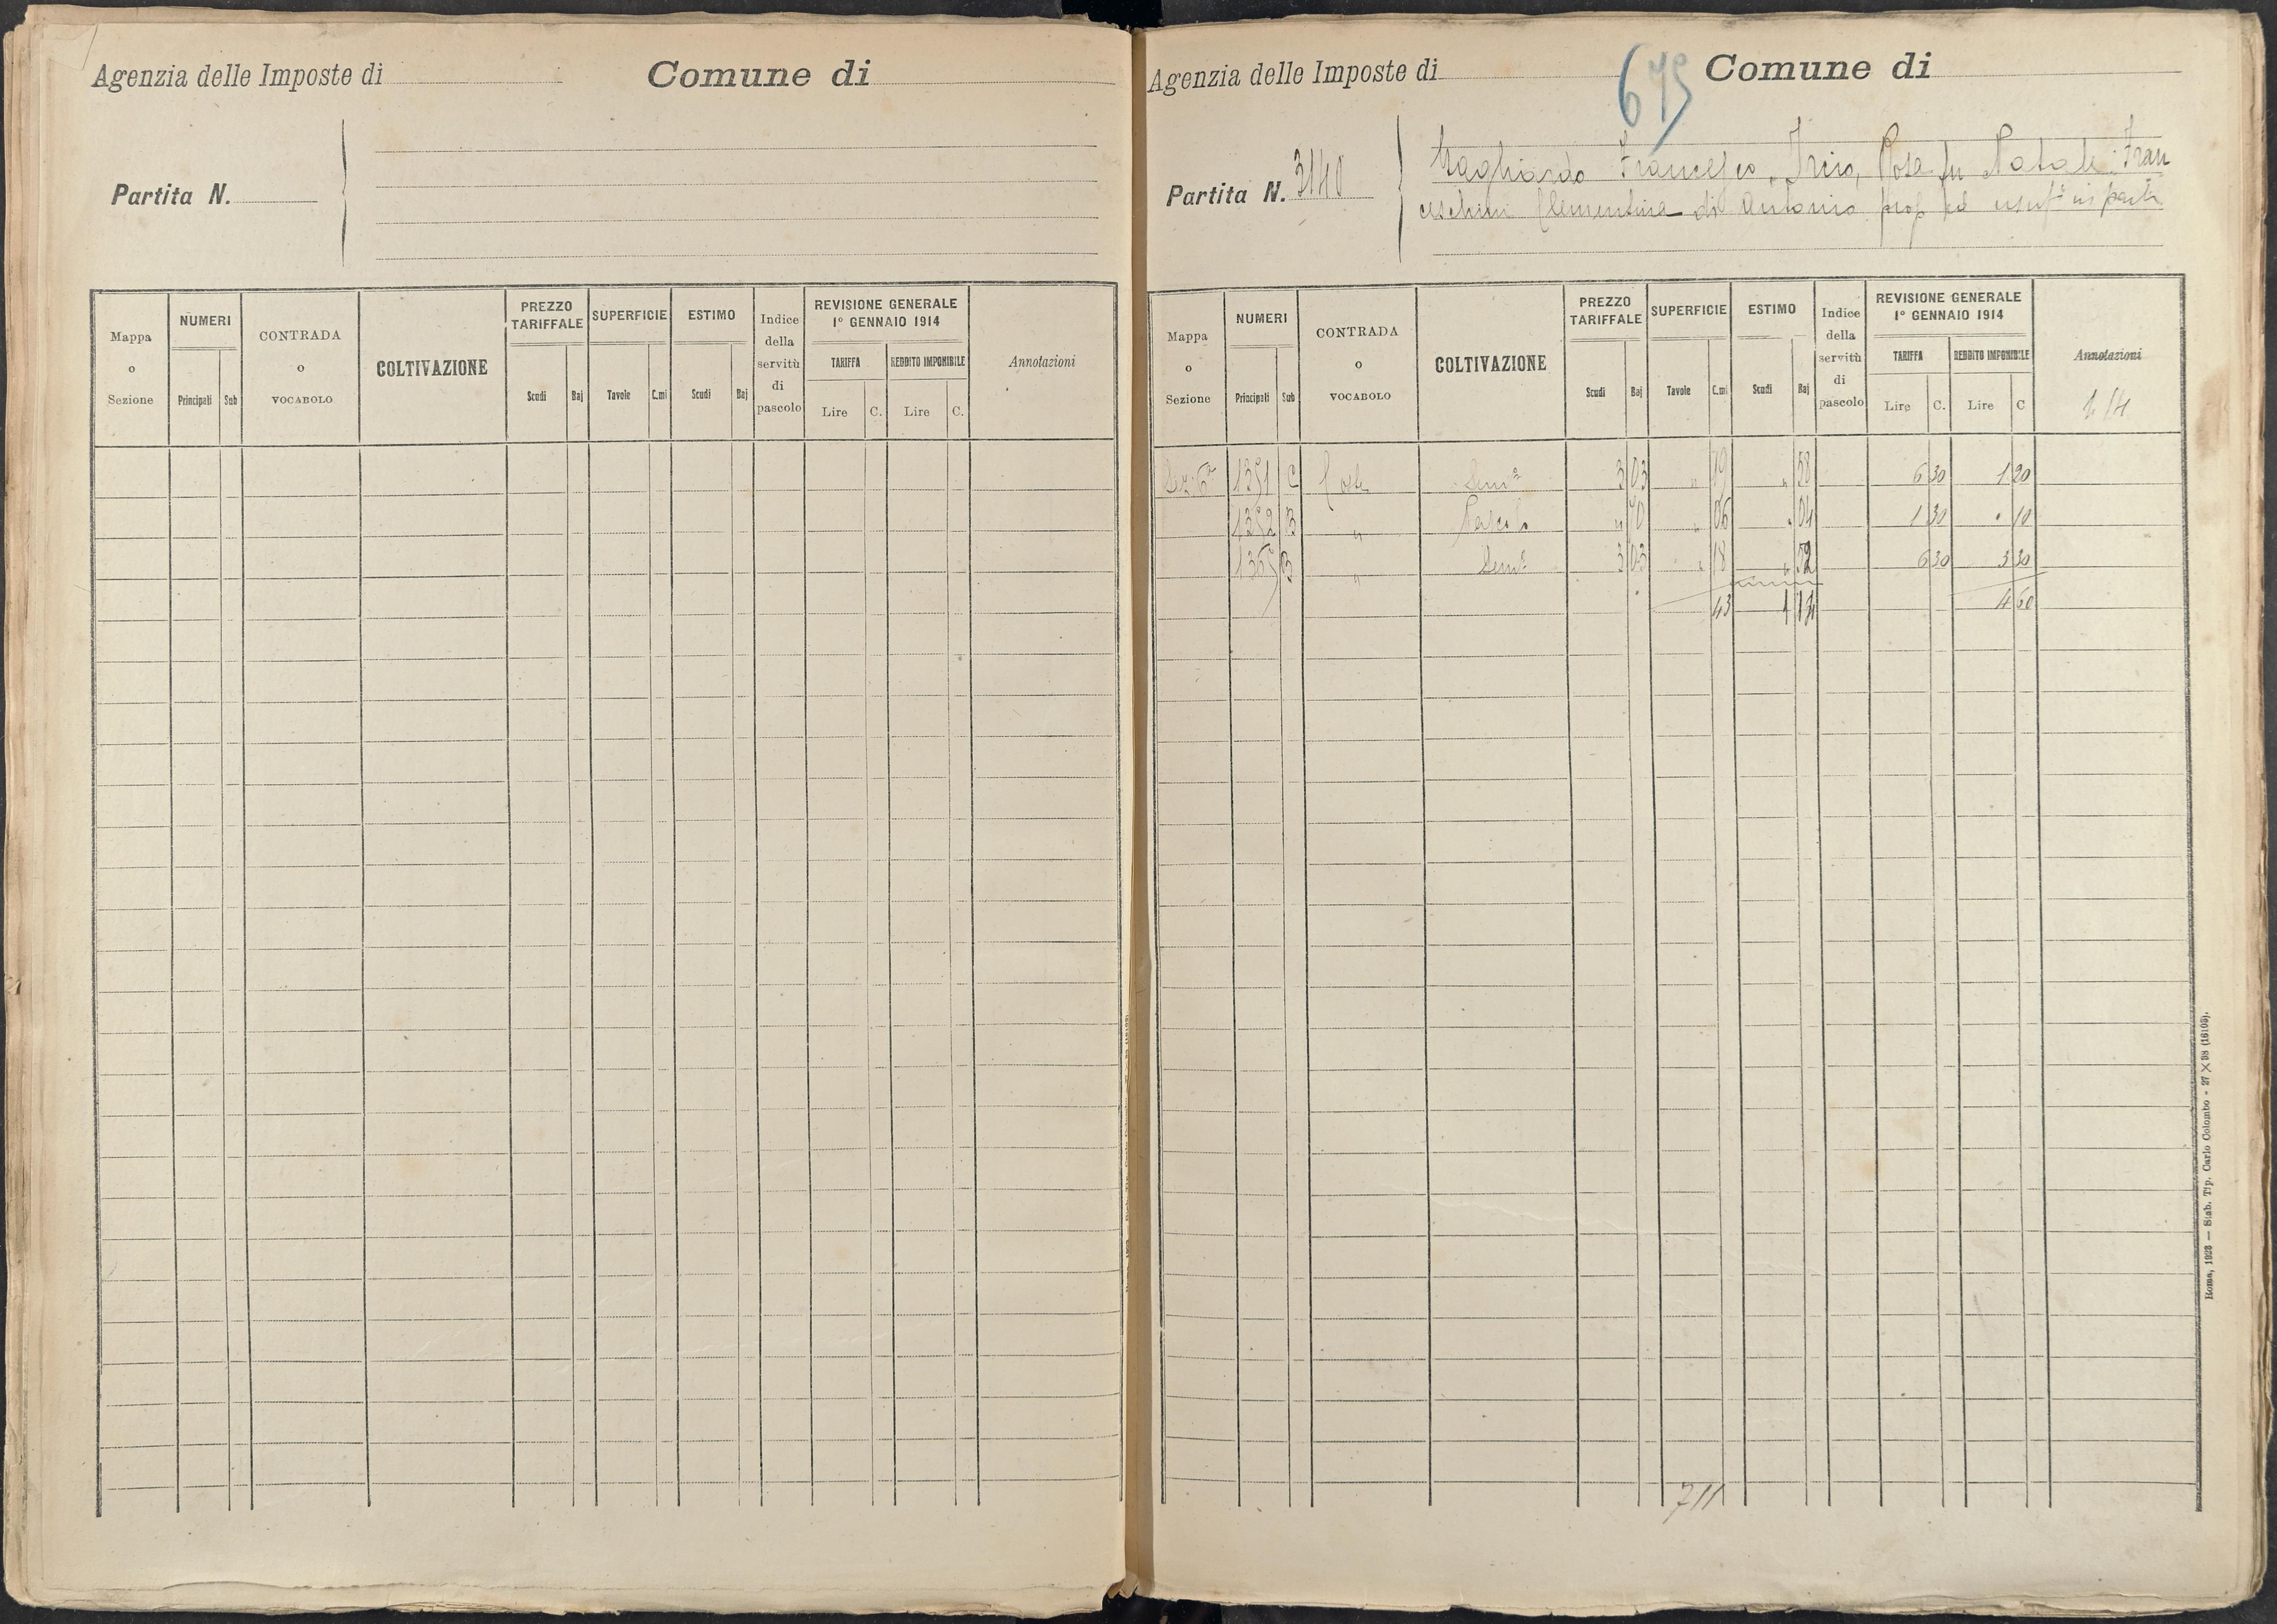 Agenzia delle Imposte di
Comune di
Partita N.
Mappa o Sezione
NUMERI
Principali
Sub
CONTRADA o VOCABOLO
COLTIVAZIONE
PREZZO TARIFFALE
Scudi
Baj
SUPERFICIE
Tavole
C.mi
ESTIMO
Scudi
Baj
Indice della servitù di pascolo
REVISIONE GENERALE
1° GENNAIO 1914
TARIFFA
REDDITO IMPONIBILE
Lire
C.
Lire
C.
Annotazioni
Agenzia delle Imposte di
675
Comune di
Partita N. 3140
Francesco, Rosa fu Natale. Fran
ceschini Clementina di Antonio prop ed usuf° in parte
Mappa o Sezione
NUMERI
Principali
Sub
CONTRADA o VOCABOLO
COLTIVAZIONE
PREZZO TARIFFALE
Scudi
Baj
SUPERFICIE
Tavole
C.mi
ESTIMO
Scudi
Baj
Indice della servitù di pascolo
REVISIONE GENERALE
1° GENNAIO 1914
TARIFFA
REDDITO IMPONIBILE
Lire
C.
Lire
C
Annotazioni
Sez. 6ª 1351 C Cose Sem° 3 03 " 19 " 58 6 30 1 20
1352 B " Pascolo " 70 " 06 " 04 1 30 " 10
1365 B " Sem° 3 03 " 18 " 52 6 30 3 30
43 1 14 4 60
711
Roma, 1923 — Stab. Tip. Carlo Colombo - 27 × 38 (16108).